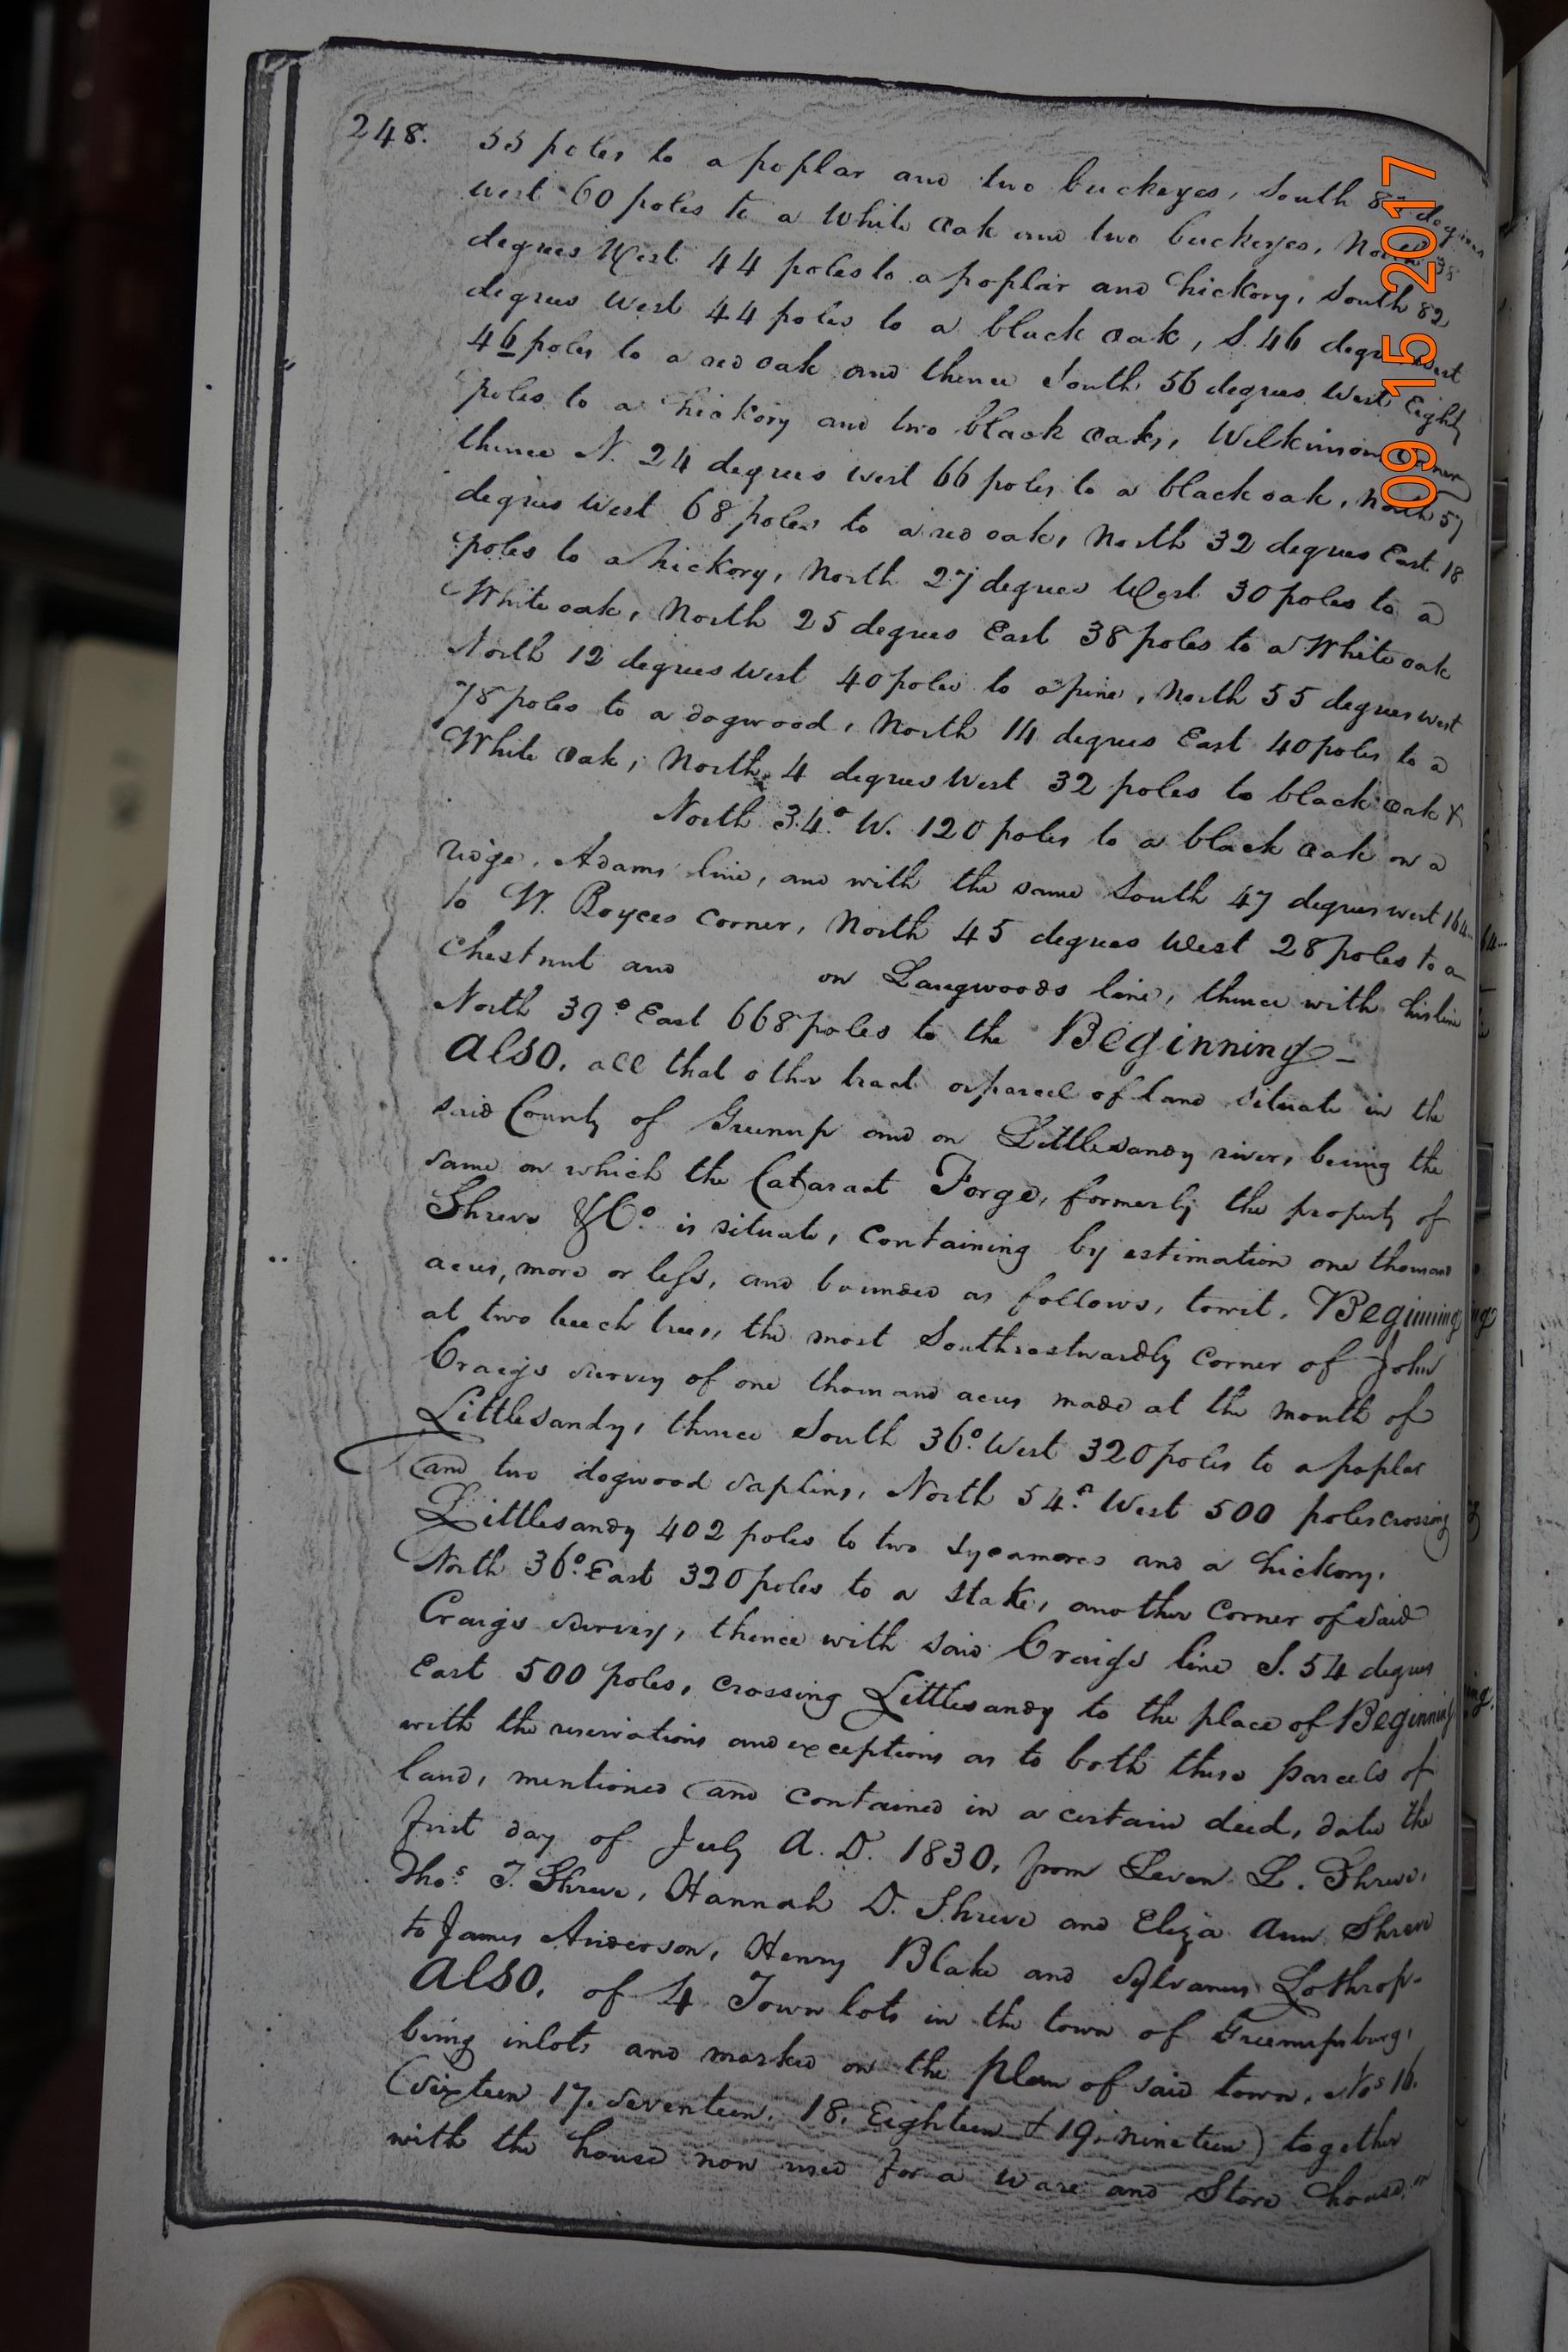 248.
55 poles to a poplar and two buckeyes, South degrees
west 60 poles to a White Oak and two buckeyes, North 35
degrees West 44 poles to a poplar and hickory, South 82
degrees west 44 poles to a black Oak, S. 46 degrees West
46 poles to a red oak and thence South 56 degrees West Eighty
poles to a hickory and two black Oaks, Wilkinson Corner
thence N. 24 degrees west 66 poles to a black oak, North 57
degrees West 68 poles to a red oak, North 32 degrees East 18
poles to a hickory, North 27 degrees West 30 poles to a
White oak, North 25 degrees East 38 poles to a White oak
North 12 degrees West 40 poles to a pine, North 55 degrees west
78 poles to a dogwood, North 14 degrees East 40 poles to a
White Oak, North 4 degrees West 32 poles to black Oak &
North 34° W. 120 poles to a black Oak on a
ridge, Adams line, and with the same South 47 degrees west 164
to W. Royces corner, North 45 degrees West 28 poles to a
Chestnut and on Langwoods line, thence with his line
North 39° East 668 poles to the Beginning -
Also, all that other tract or parcel of land situate in the
said County of Greenup and on Littlesandy river, being the
same on which the Cataract Forge, formerly the property of
Shreve & Co is situate, containing by estimation one thousand
acres, more or less, and bounded as follows, towit. Beginning
at two beech trees, the most Southeastwardly corner of John
Craigs survey of one thousand acres made at the mouth of
Littlesandy, thence South 36° West 320 poles to a poplar
and two dogwood saplins, North 54° West 500 poles crossing
Littlesandy 402 poles to two Sycamores and a hickory,
North 36° East 320 poles to a Stake, another corner of said
Craigs survey, thence with said Craigs line S. 54 degrees
East 500 poles, crossing Littlesandy to the place of Beginning
with the reservations and exceptions as to both these parcels of
land, mentioned and contained in a certain deed, date the
first day of July A.D. 1830, from Leven L. Shreve,
Thos. T. Shreve, Hannah D. Shreve and Eliza Ann Shreve
to James Anderson, Henry Blake and Sylvanus Lothrop.
Also, of 4 Town lots in the town of Greenupsburg,
being inlots and marked on the plan of said town, Nos 16.
(Sixteen 17. Seventeen. 18. Eighteen & 19. nineteen) together
with the house now used for a ware and Store house
09 15 2017